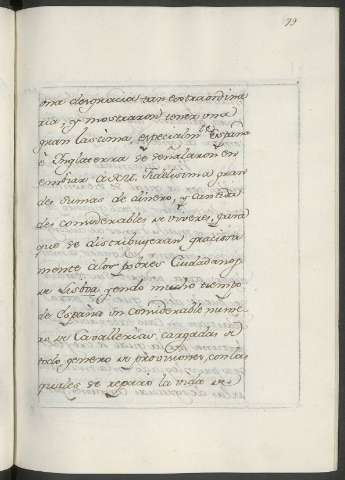 79
una desgracia tan extraordina
ria, y mostraron tener una
gran lastima, especialm.te España
è Inglaterra se señalaron en
embiar à S.M. Fidelisima gran
des sumas de dinero, y cantida
des considerables de viveres, para
que se distribuyeran graciosa
mente à los pobres Ciudadanos
de Lisboa, yendo mucho tiempo
de España un considerable nume
ro de Cavallerias, cargadas de
todo genero de provisiones, con las
quales se reparo la vida de